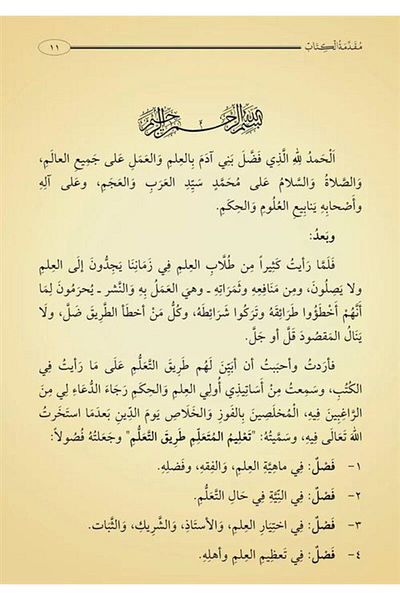 مُقَدِّمَةُ الْكِتَابِ
١١
بِسْمِ اللَّهِ الرَّحْمَنِ الرَّحِيمِ
اَلْحَمدُ لِلَّهِ الَّذِي فَضَّلَ بَنِي آدَمَ بِالعِلمِ وَالعَمَلِ عَلى جَمِيعِ العالَمِ،
وَالصَّلاةُ وَالسَّلامُ عَلى مُحَمَّدٍ سَيِّدِ العَرَبِ وَالعَجَمِ، وعَلى آلِهِ
وأَصْحابِهِ يَنابِيعِ العُلُومِ وَالحِكَمِ.
وبَعدُ:
فَلَمَّا رَأيتُ كَثِيراً مِن طُلَّابِ العِلمِ فِي زَمَانِنَا يَجِدُّونَ إلَى العِلمِ
ولا يَصِلُونَ، ومِن مَنَافِعِهِ وثَمَرَاتِهِ ـ وهيَ العَمَلُ بِهِ وَالنَّشر ـ يُحرَمُونَ لِمَا
أَنَّهُمْ أَخْطَؤُوا طَرائِقَهُ وتَرَكُوا شَرَائِطَهُ، وكُلُّ مَنْ أخطَأَ الطَّرِيقَ ضَلَّ، ولَا
يَنَالُ المَقصُودَ قَلَّ أو جَلَّ.
فأرَدتُ وأحبَبتُ أن أبَيِّنَ لَهُم طَرِيقَ التَّعَلُّمِ عَلَى مَا رَأيتُ فِي
الكُتُبِ، وسَمِعتُ مِنْ أَسَاتِيذِي أُولِي العِلمِ وَالحِكَمِ رَجَاءَ الدُّعَاءِ لِي مِنَ
الرَّاغِبِينَ فِيهِ، المُخلَصِينَ بِالفَوزِ وَالخَلَاصِ يَومَ الدِّينِ بَعدَمَا استَخَرتُ
اللهَ تَعَالَى فِيهِ، وسَمَّيتُهُ: "تَعْلِيمُ المُتَعَلِّمِ طَرِيقَ التَّعَلُّمِ" وجَعَلتُهُ فُصُولاً:
١- فَصْلٌ: فِي مَاهِيَّةِ العِلمِ، وَالفِقهِ، وفَضلِهِ.
٢- فَصْلٌ: فِي النِّيَّةِ فِي حَالِ التَّعَلُّمِ.
٣- فَصْلٌ: فِي اختِيَارِ العِلمِ، وَالأستَاذِ، وَالشَّرِيكِ، وَالثَّبَات.
٤- فَصْلٌ: فِي تَعظِيمِ العِلمِ وأهلِهِ.